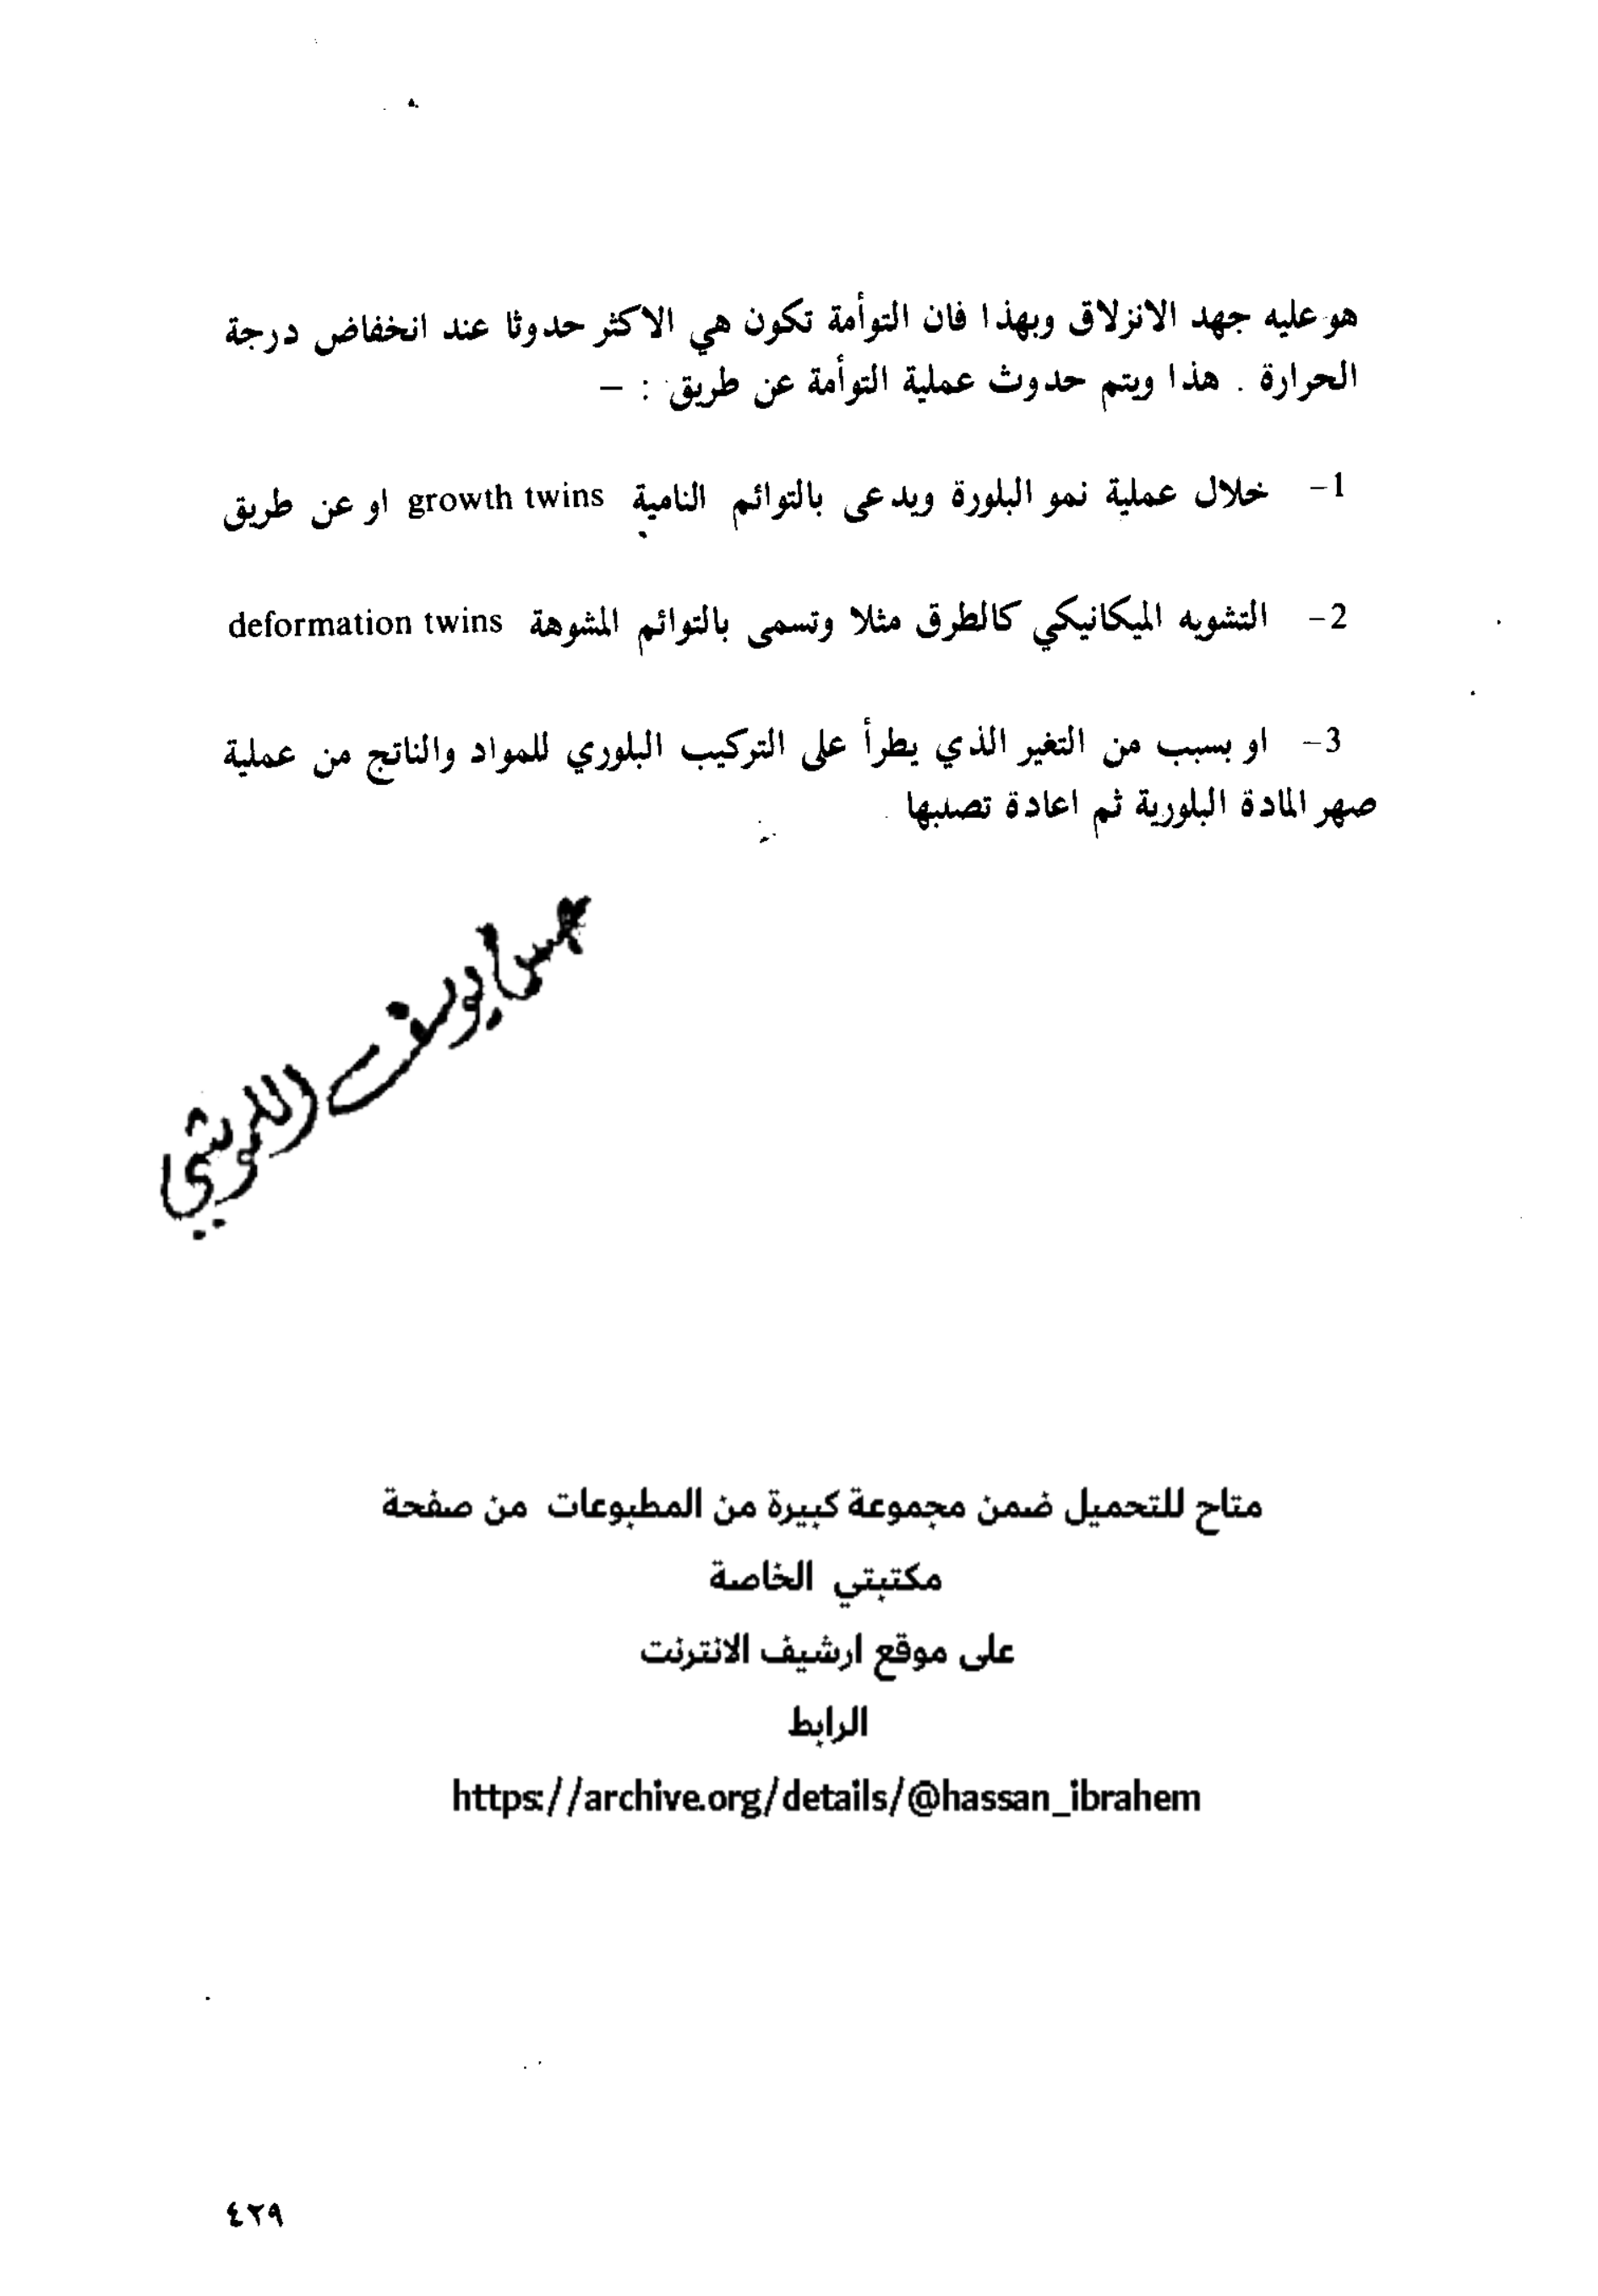 هو عليه جهد الانزلاق وبهذا فان التوأمة تكون هي الاكثر حدوثا عند انخفاض درجة
الحرارة . هذا ويتم حدوث عملية التوأمة عن طريق : –
1- خلال عملية نمو البلورة ويدعى بالتوائم النامية growth twins او عن طريق
2- التشويه الميكانيكي كالطرق مثلا وتسمى بالتوائم المشوهة deformation twins
3- او بسبب من التغير الذي يطرأ على التركيب البلوري للمواد والناتج من عملية
صهر المادة البلورية ثم اعادة تصلبها
يوسف
متاح للتحميل ضمن مجموعة كبيرة من المطبوعات من صفحة
مكتبتي الخاصة
على موقع ارشيف الانترنت
الرابط
https://archive.org/details/@hassan_ibrahem
٤٢٩